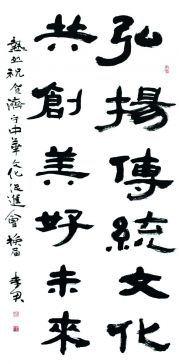 弘揚傳統文化
共創美好未來
熱烈祝賀濟宁中華文化促進會換届 李